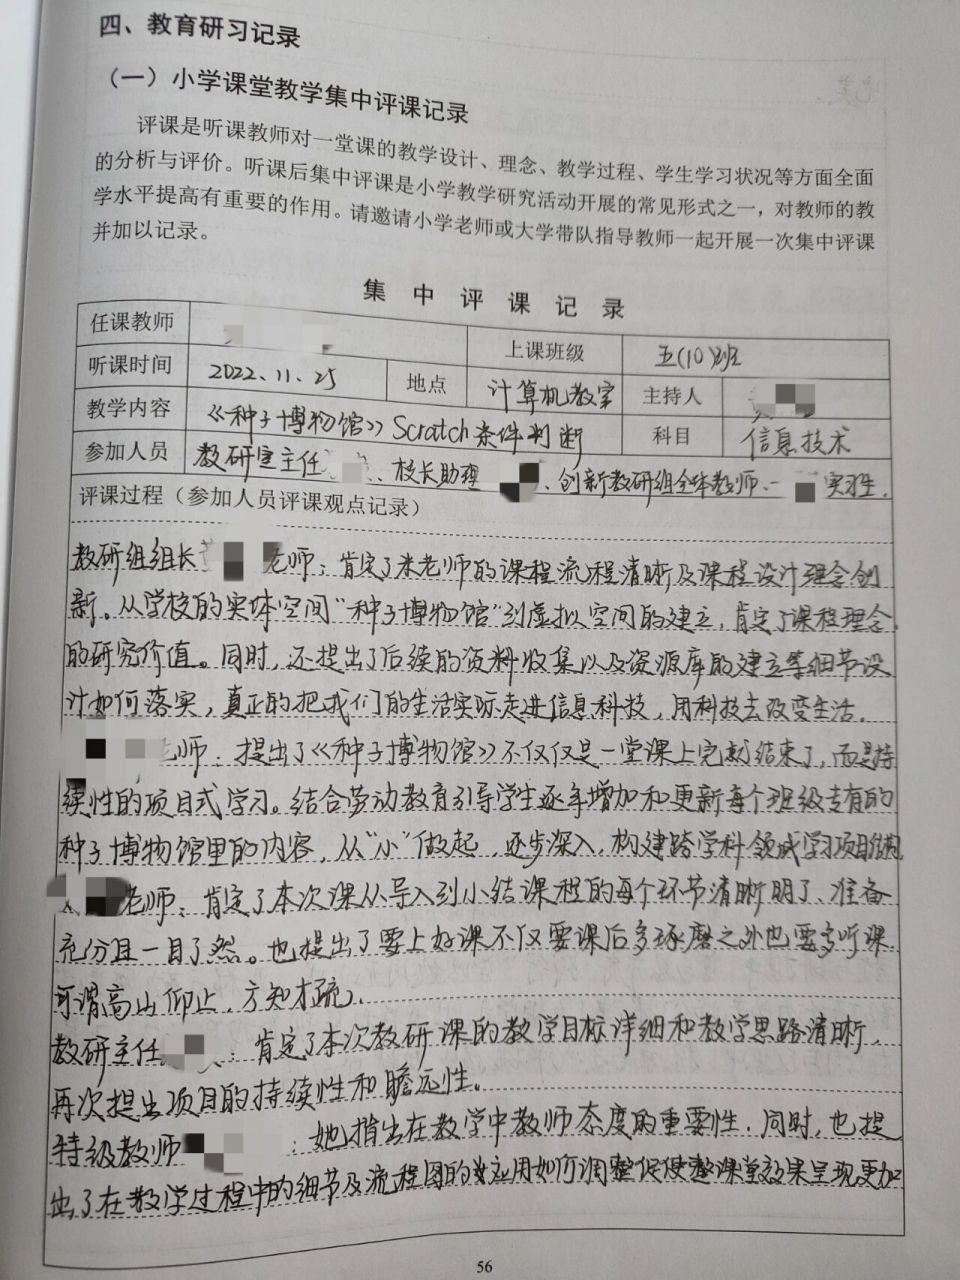 四、教育研习记录
（一）小学课堂教学集中评课记录
评课是听课教师对一堂课的教学设计、理念、教学过程、学生学习状况等方面全面
的分析与评价。听课后集中评课是小学教学研究活动开展的常见形式之一，对教师的教
学水平提高有重要的作用。请邀请小学老师或大学带队指导教师一起开展一次集中评课
并加以记录。
集中评课记录
任课教师 上课班级 五(10)班
听课时间 2022、11、25 地点 计算机教室 主持人
教学内容 《种子博物馆》Scratch条件判断 科目 信息技术
参加人员 教研室主任 、校长助理 、创新教研组全体教师、 实习生.
评课过程（参加人员评课观点记录）
教研组组长 老师：肯定了米老师的课程流程清晰及课程设计理念创
新。从学校的实体空间"种子博物馆"到虚拟空间的建立，肯定了课程理念
的研究价值。同时，还提出了后续的资料收集以及资源库的建立等细节设
计如何落实，真正的把我们的生活实际走进信息科技，用科技去改变生活.
老师：提出了《种子博物馆》不仅仅是一堂课上完就结束了，而是持
续性的项目式学习。结合劳动教育引导学生逐年增加和更新每个班级专有的
种子博物馆里的内容，从"小"做起，逐步深入，构建跨学科领域学习项目
老师：肯定了本次课从导入到小结课程的每个环节清晰明了、准备
充分且一目了然。也提出了要上好课不仅要课后多琢磨之外也要多听课.
可谓高山仰止，方知才疏）.
教研主任 ：肯定了本次教研课的教学目标详细和教学思路清晰，
再次提出项目的持续性和瞻远性。
特级教师 ：她指出在教学中教师态度的重要性.同时，也提
出了在教学过程中的细节及流程图的应用如何调整促使整课堂效果呈现更加
56